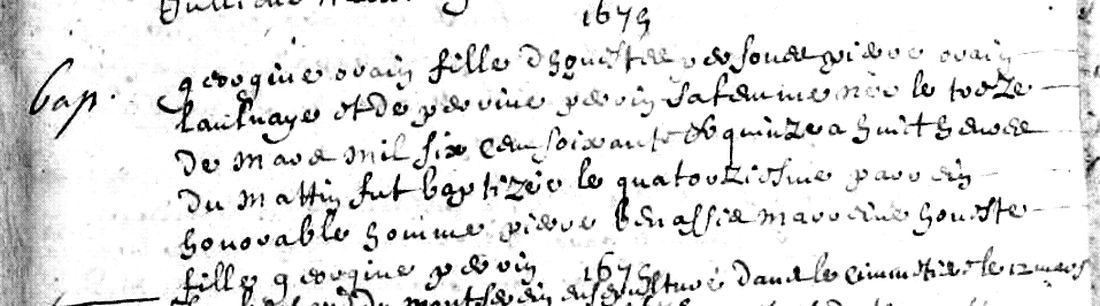 1675
bap.
georgine orain fille dhoneste personne pierre orain
laulnaye et de perrine perrin sa femme née le treze
de mars mil six cens soixante & quinze a huict heures
du mattin fut baptizée le quatorziesme parrein
honorable homme pierre benassis marreine honeste
fille georgine perrin 1675
du enseputuré dans le cimmetiere le 12 mars